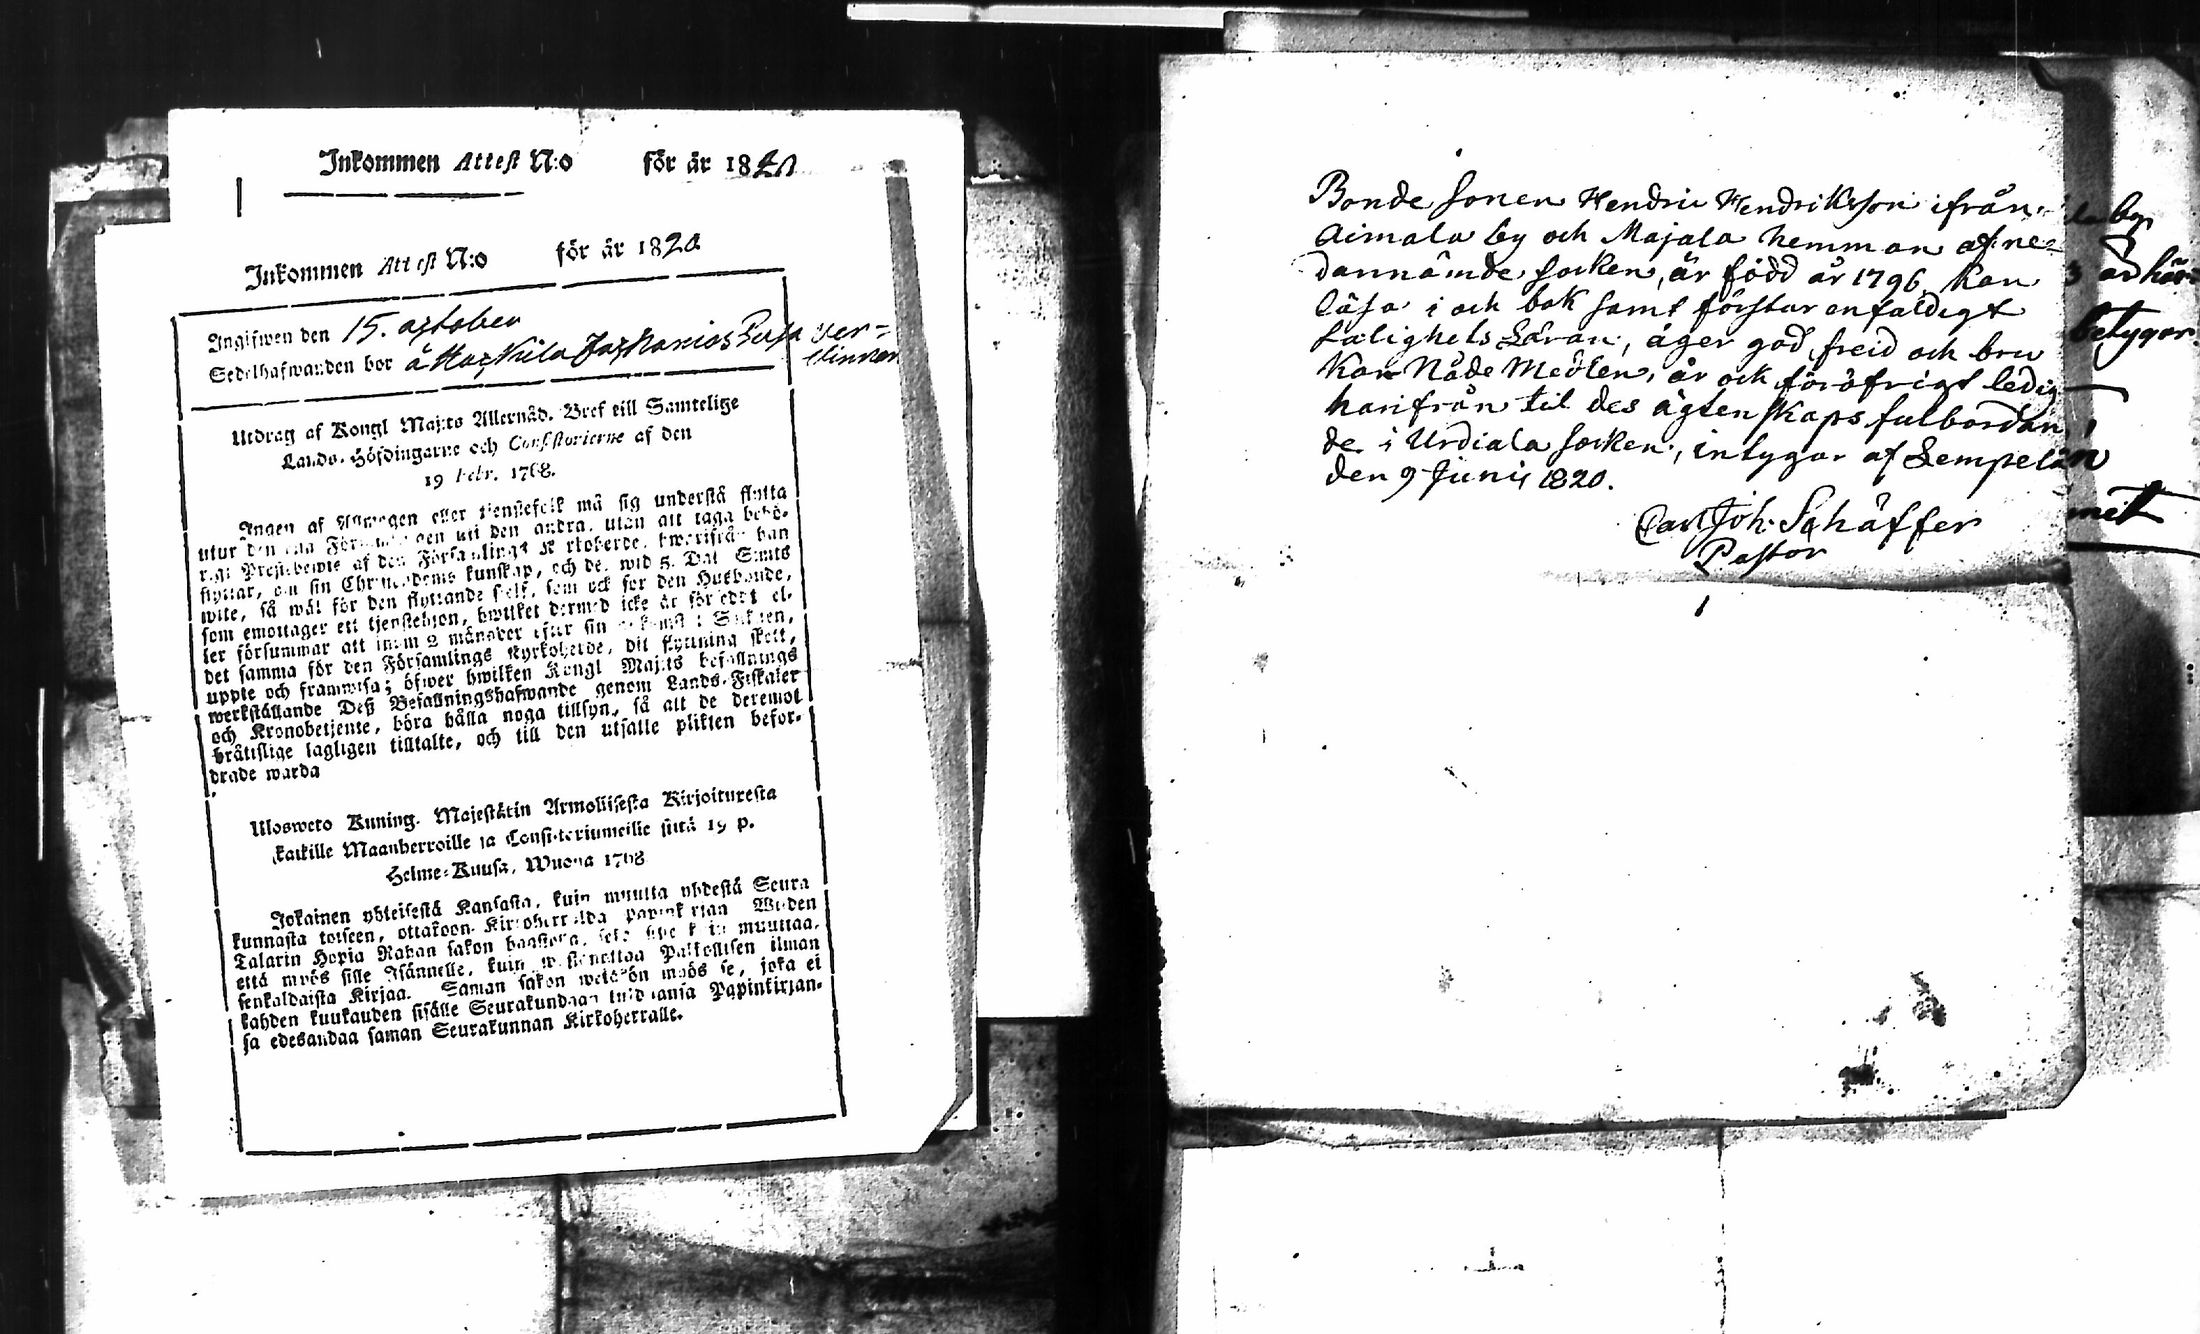 Inkommen Attest N:o för år 1820
Inkommen Attest N:o för år 1820
Ingifwen den 15. october
Sedelhafwanden bor å
Utdrag af Kongl Maj:ts Allernåd. Bref till Samtelige
Lands-Höfdingarne och Consistorierne af den
19 Febr. 1768.
Ingen af Allmogen eller tienstefolk må sig understå flytta
utur den ena Församlingen uti den andra, utan att taga behö-
rigt Prestebewis af den Församlings Kyrkoherde, hwarifrån han
flyttar, om sin Christendoms kunskap, och det wid 5. Dal. S:mts
wite, så wäl för den flyttande sjelf, som ock för den Husbonde,
som emottager ett tjenstehjon, hwilket dermed icke är försedt el-
ler försummar att inom 2 månader efter sin ankomst i Socknen,
det samma för den Församlings Kyrkoherde, dit flyttning skett,
uppte och framwisa; öfwer hwilken Kongl Maj:ts befallnings
werkställande Deß Befallningshafwande genom Lands-Fiskaler
och Kronobetjente, böra hålla noga tillsyn, så att de deremot
bråttslige lagligen tilltalte, och till den utsatte plikten befor-
drade warda
Ulosweto Kuning. Majestätin Armollisesta Kirjoituresta
kaikille Maanherroille ja Consistoriumeille siitä 19 p.
Helme-Kuusa, Wuona 1768
Jokainen yhteisestä Kansasta, kuin muutta yhdestä Seura
kunnasta toiseen, ottakoon Kirkoherralda papinkirjan Wijden
Talarin Hopia Rahan sakon haastolla, sekä sille kuin muuttaa,
että myös sille Isännelle, kuin wastanottaa Palkollisen ilman
senkaldaista Kirjaa. Saman sakon wetäkön myös se, joka ei
kahden kuukauden sisälle Seurakundaan tulduansa Papinkirjan-
sa edesandaa saman Seurakunnan Kirkoherralle.
Bonde sonen Hendric Hendriksson ifrån
Aimala by och Majala hemman af ne-
dannämde socken, är född år 1796, kan
läsa i och bok samt förstår enfaldigt
Salighets Läran, äger god freid och bru
kar Nåde Medlen, är ock föröfrigt ledig
härifrån til des ägtenskaps fulbordan
de i Urdiala socken, intygar af Lempelä
den 9 Junii 1820.
Carl Joh. Schäffer
Pastor
by
betygar